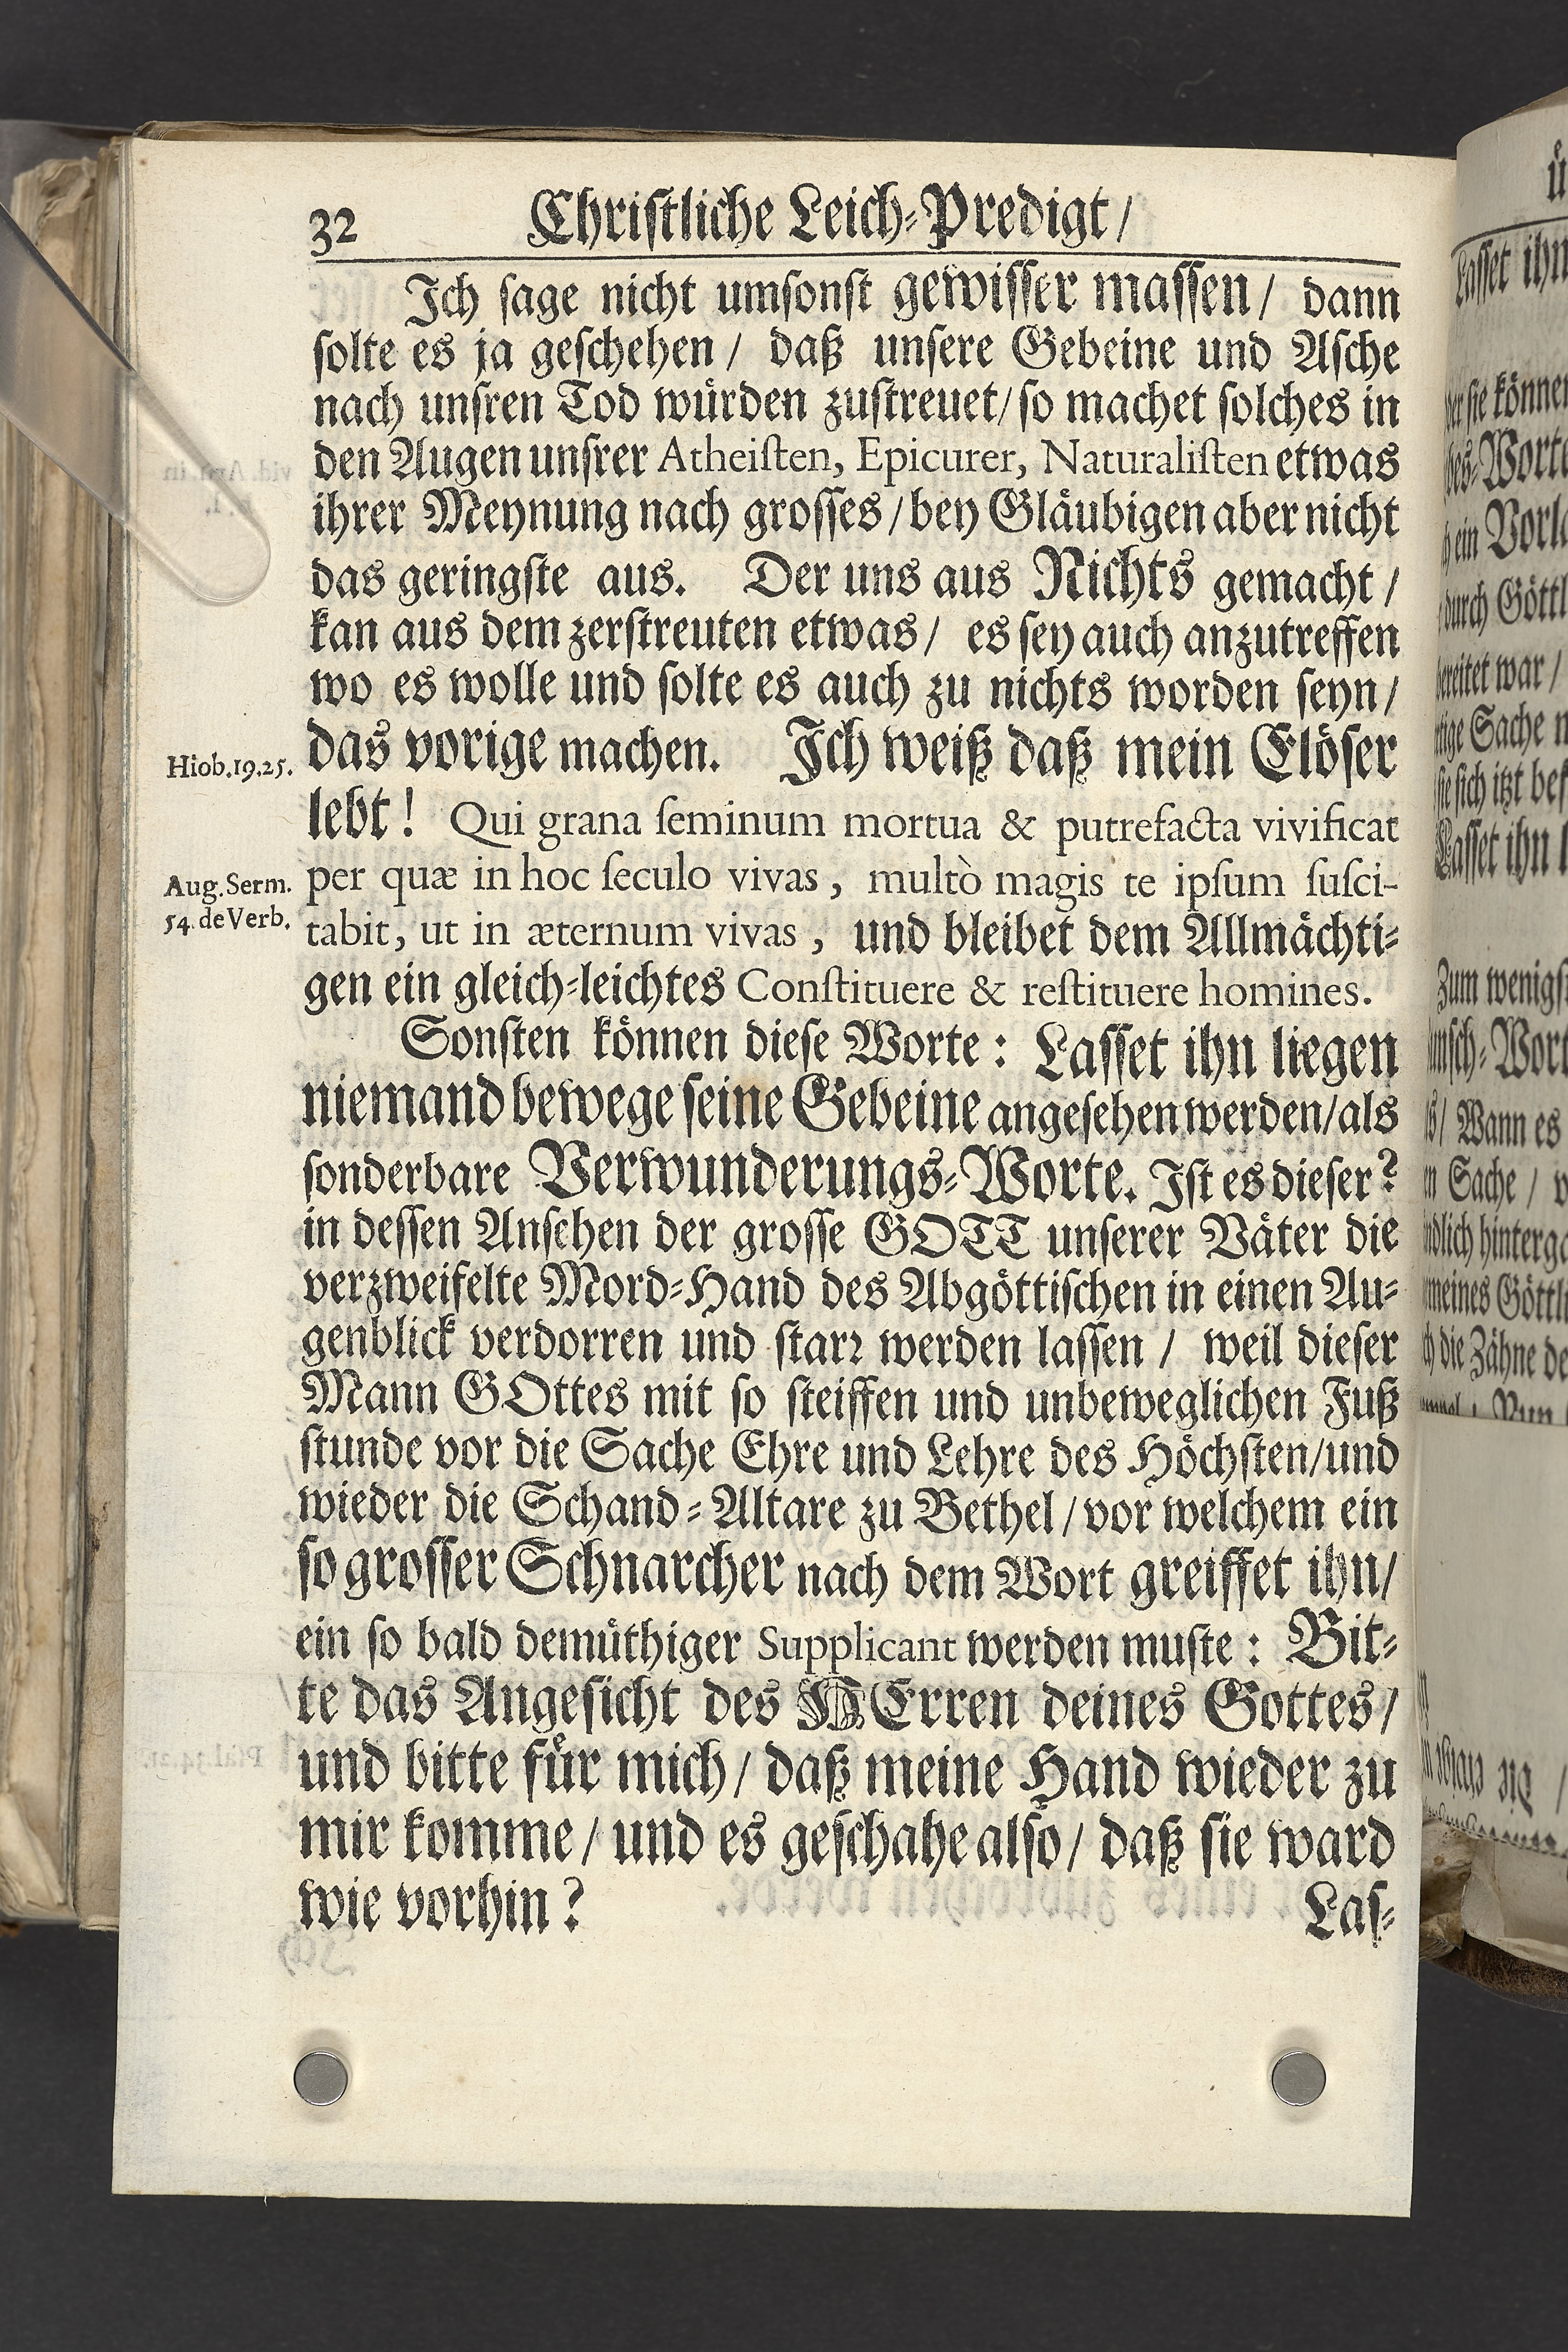 32 Christliche Leich-Predigt/
Ich sage nicht umsonst gewisser massen/ dann
solte es ja geschehen/ daß unsere Gebeine und Asche
nach unsren Tod würden zustreuet/ so machet solches in
den Augen unsrer Atheisten, Epicurer, Naturalisten etwas
ihrer Meynung nach grosses/ bey Gläubigen aber nicht
das geringste aus. Der uns aus Nichts gemacht/
kan aus dem zerstreuten etwas/ es sey auch anzutreffen
wo es wolle und solte es auch zu nichts worden seyn/
Hiob.19.25. das vorige machen. Ich weiß daß mein Elöser
lebt! Qui grana seminum mortua & putrefacta vivificat
Aug. Serm. per quæ in hoc seculo vivas, multò magis te ipsum susci-
54. de Verb. tabit, ut in æternum vivas, und bleibet dem Allmächti-
gen ein gleich-leichtes Constituere & restituere homines.
Sonsten können diese Worte: Lasset ihn liegen
niemand bewege seine Gebeine angesehen werden/ als
sonderbare Verwunderungs-Worte. Ist es dieser?
in dessen Ansehen der grosse GOTT unserer Väter die
verzweifelte Mord-Hand des Abgöttischen in einen Au-
genblick verdorren und starr werden lassen/ weil dieser
Mann GOttes mit so steiffen und unbeweglichen Fuß
stunde vor die Sache Ehre und Lehre des Höchsten/ und
wieder die Schand-Altare zu Bethel/ vor welchem ein
so grosser Schnarcher nach dem Wort greiffet ihn/
ein so bald demüthiger Supplicant werden muste: Bit-
te das Angesicht des HErren deines Gottes/
und bitte für mich/ daß meine Hand wieder zu
mir komme/ und es geschahe also/ daß sie ward
wie vorhin?
Las-